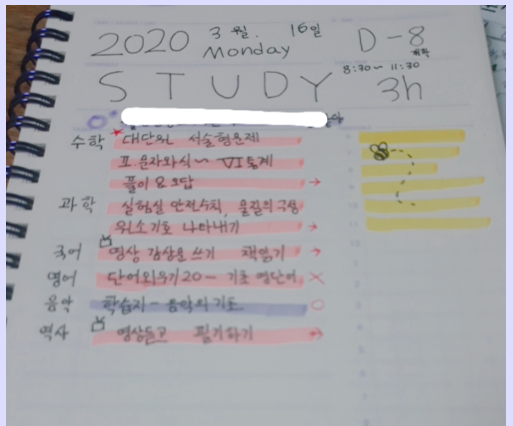 2020 3월. 16일 D-8
Monday 개학
8:30~11:30
STUDY 3h
수학 대단원 서술형문제
Ⅱ 문자와식~ Ⅵ 통계
풀이 & 오답 →
과학 실험실 안전수칙, 물질의 구성
원소기호 나타내기 →
국어 영상 감상문쓰기 책읽기 →
영어 단어외우기 20- 기초 영단어 X
음악 학습지 - 음악의 기초 O
역사 영상듣고 필기하기 →